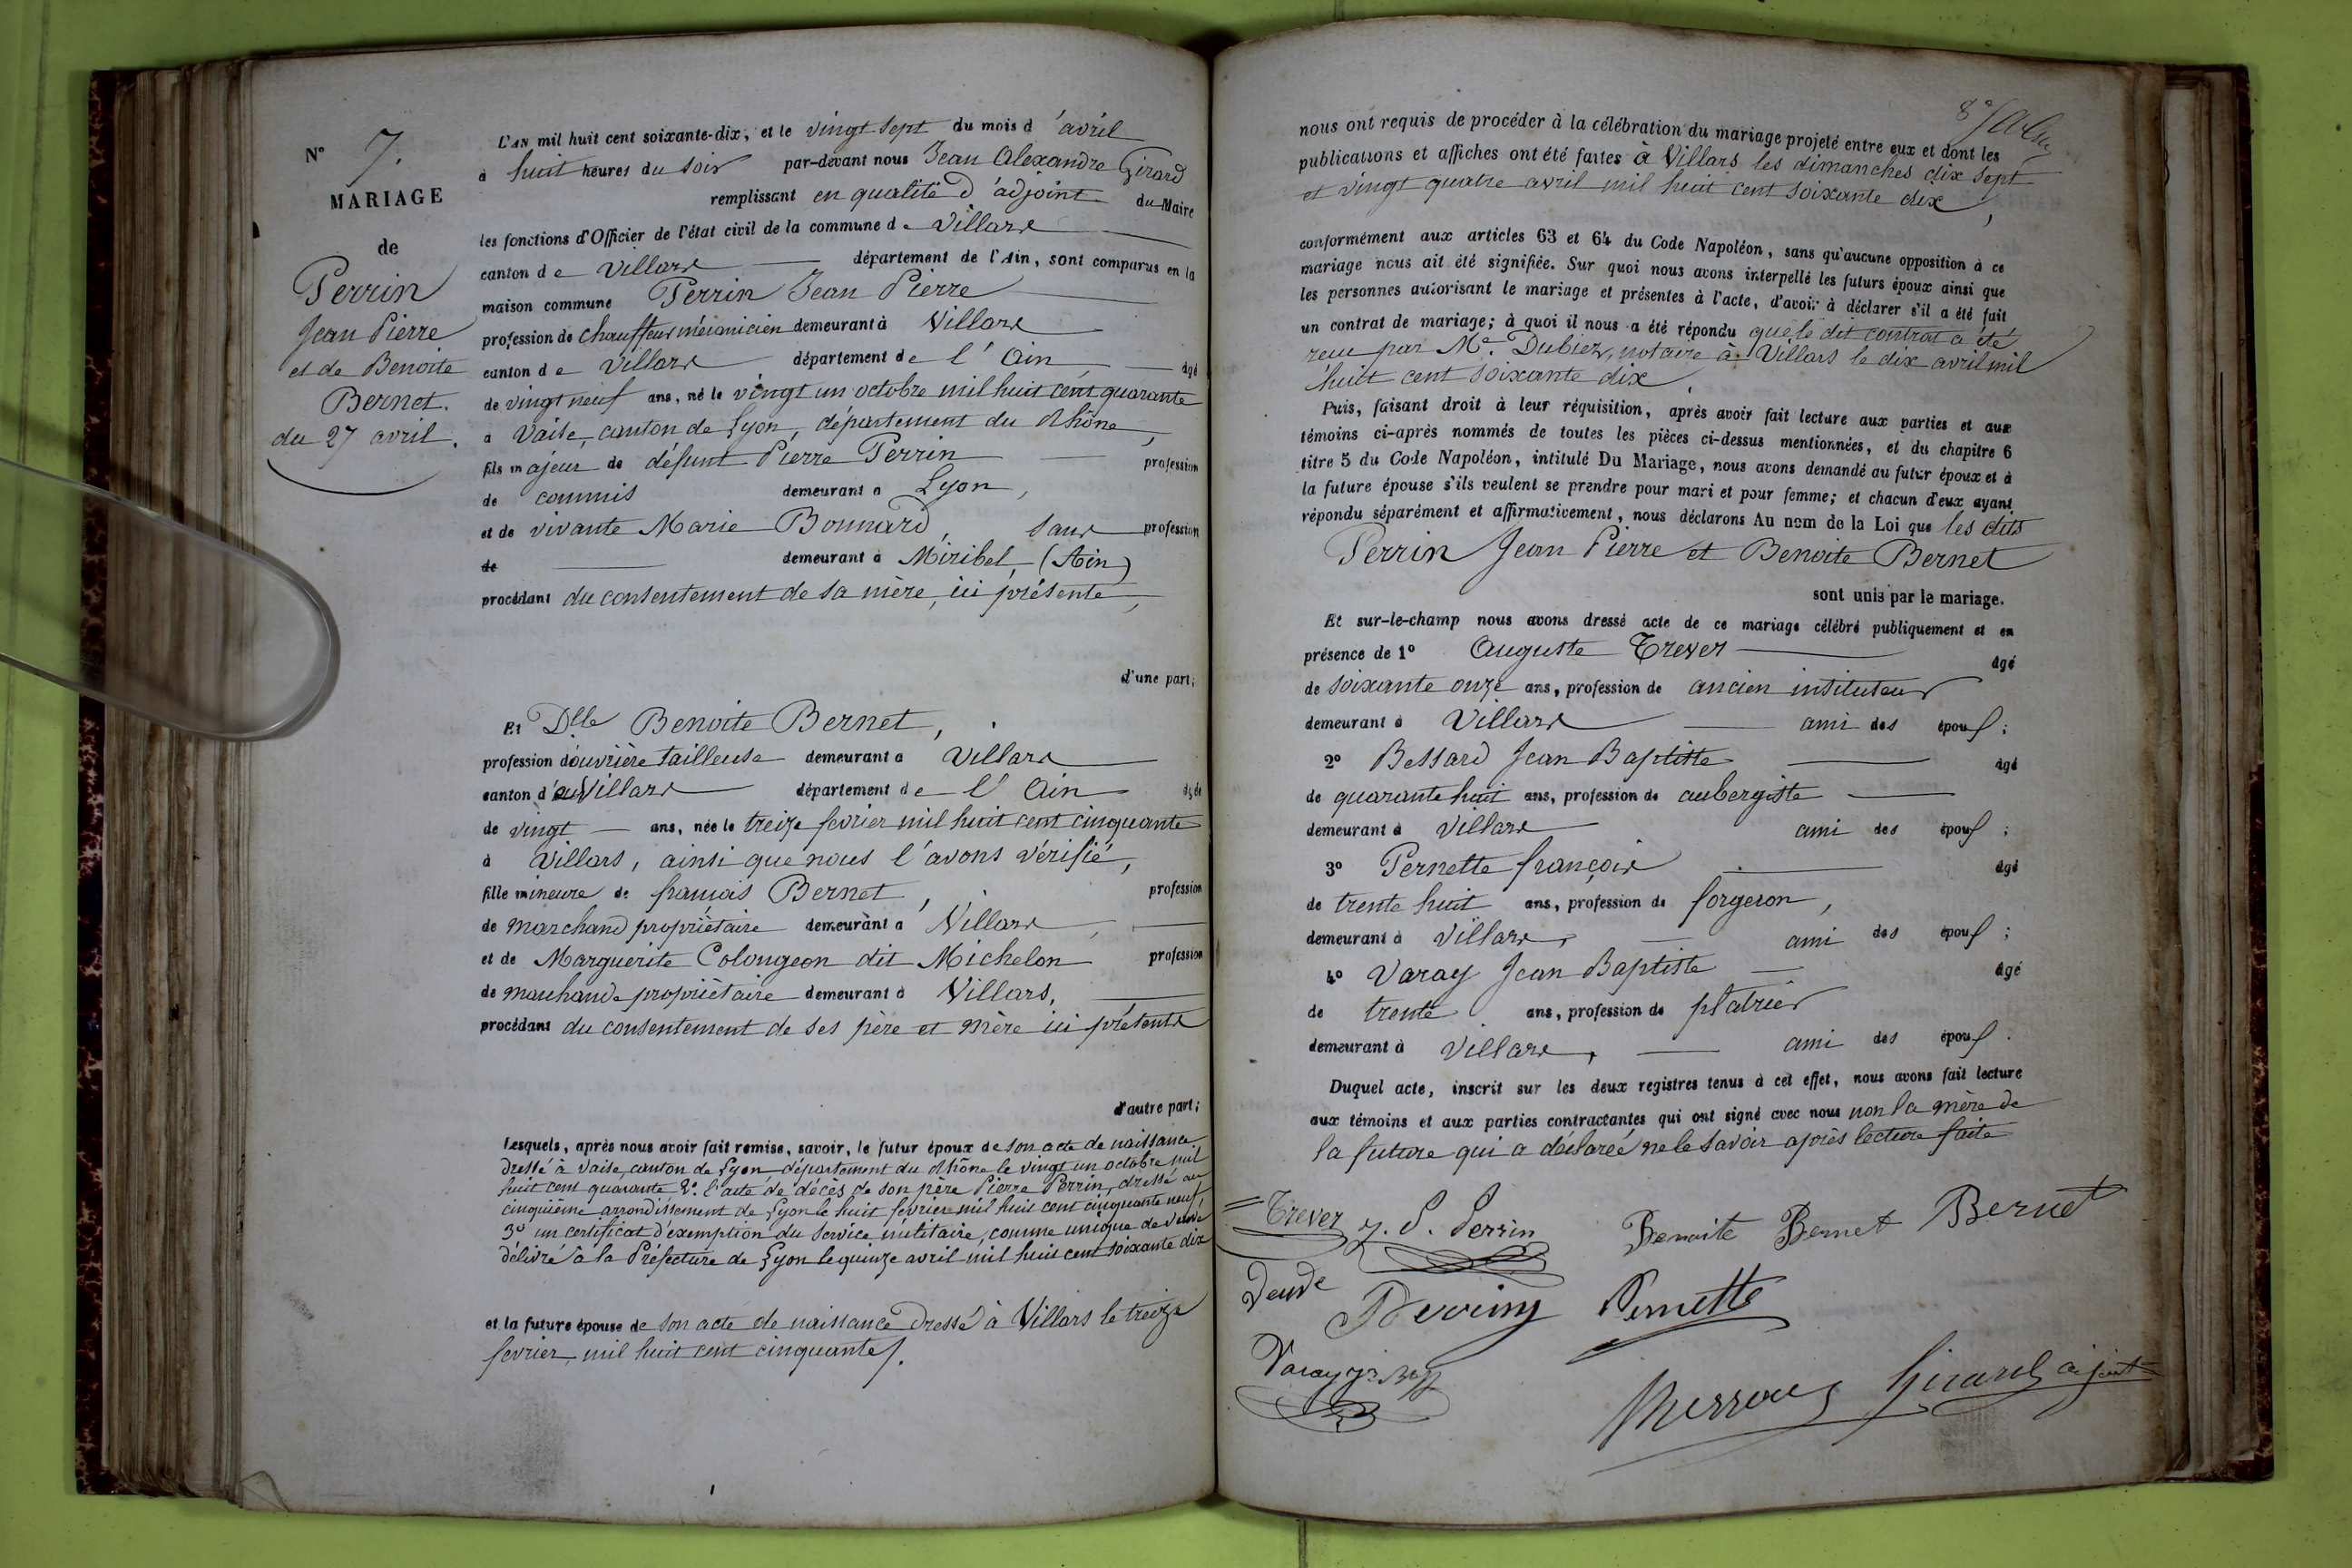 N° 7.
MARIAGE
de
Perrin
Jean Pierre
et de Benoite
Bernet.
du 27 avril.
L'AN mil huit cent soixante-dix, et le vingt sept du mois d'avril
à huit heures du soir par-devant nous Jean Alexandre Girard
remplissant en qualité d'adjoint du Maire
les fonctions d'Officier de l'état civil de la commune de Villars
canton de Villars département de l'Ain, sont comparus en la
maison commune Perrin Jean Pierre
profession de chauffeur mécanicien demeurant à Villars
canton de Villars département de l'Ain âgé
de vingt neuf ans, né le vingt un octobre mil huit cent quarante
à Vaise, canton de Lyon, département du Rhône,
fils majeur de défunt Pierre Perrin profession
de commis demeurant à Lyon,
et de vivante Marie Bonnard, sans profession
de demeurant à Miribel, (Ain)
procédant du consentement de sa mère, ici présente,
d'une part;
Et Dlle Benoite Bernet,
profession d'ouvrière tailleuse demeurant à Villars
canton de Villars département de l'Ain âgée
de vingt ans, née le treize fevrier mil huit cent cinquante
à Villars, ainsi que nous l'avons vérifié,
fille mineure de françois Bernet, profession
de marchand propriétaire demeurant à Villars,
et de Marguerite Colongeon dit Michelon profession
de marchande propriétaire demeurant à Villars,
procédant du consentement de ses père et mère ici présents
d'autre part;
Lesquels, après nous avoir fait remise, savoir, le futur époux de son acte de naissance
dressé à Vaise, canton de Lyon département du Rhône le vingt un octobre mil
huit cent quarante 2°. l'acte de décès de son père Pierre Perrin, dressé au
cinquième arrondissement de Lyon le huit fevrier mil huit cent cinquante neuf,
3° un certificat d'exemption du service militaire, comme unique de veuve
délivré à la Préfecture de Lyon le quinze avril mil huit cent soixante dix
et la future épouse de son acte de naissance dressé à Villars le treize
fevrier, mil huit cent cinquante.
nous ont requis de procéder à la célébration du mariage projeté entre eux et dont les
publications et affiches ont été faites à Villars les dimanches dix sept
et vingt quatre avril mil huit cent soixante dix,
conformément aux articles 63 et 64 du Code Napoléon, sans qu'aucune opposition à ce
mariage nous ait été signifiée. Sur quoi nous avons interpellé les futurs époux ainsi que
les personnes autorisant le mariage et présentes à l'acte, d'avoir à déclarer s'il a été fait
un contrat de mariage; à quoi il nous a été répondu que le dit contrat a été
reçu par Me. Dubiez, notaire à Villars le dix avril mil
huit cent soixante dix.
Puis, faisant droit à leur réquisition, après avoir fait lecture aux parties et aux
témoins ci-après nommés de toutes les pièces ci-dessus mentionnées, et du chapitre 6
titre 5 du Code Napoléon, intitulé Du Mariage, nous avons demandé au futur époux et à
la future épouse s'ils veulent se prendre pour mari et pour femme; et chacun d'eux ayant
répondu séparément et affirmativement, nous déclarons Au nom de la Loi que les dits
Perrin Jean Pierre et Benoite Bernet
sont unis par le mariage.
Et sur-le-champ nous avons dressé acte de ce mariage célébré publiquement et en
présence de 1° Auguste Trever âgé
de soixante onze ans, profession de ancien instituteur
demeurant à Villars ami des époux;
2° Bessard Jean Baptiste âgé
de quarante huit ans, profession de aubergiste
demeurant à Villars ami des époux;
3° Pernette françois âgé
de trente huit ans, profession de forgeron,
demeurant à Villars, ami des époux;
4° Varay Jean Baptiste âgé
de trente ans, profession de plâtrier
demeurant à Villars, ami des époux.
Duquel acte, inscrit sur les deux registres tenus à cet effet, nous avons fait lecture
aux témoins et aux parties contractantes qui ont signé avec nous non la mère de
la future qui a déclaré ne le savoir après lecture faite
Trever J. P. Perrin Benoite Bernet Bernet
Veuve Pernette
Varay
Girard